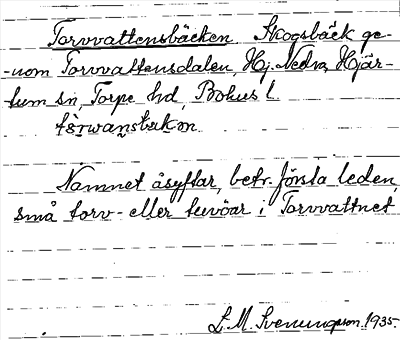 Torvvattensbäcken. Skogsbäck ge-
-nom Torvvattensdalen, Hj. Nedra, Hjär-
tum sn, Torpe hd, Bohus l.
Namnet åsyftar, betr. första leden,
små torv- eller tuvöar i Torvvattnet
L. M. Svenungson 1935.